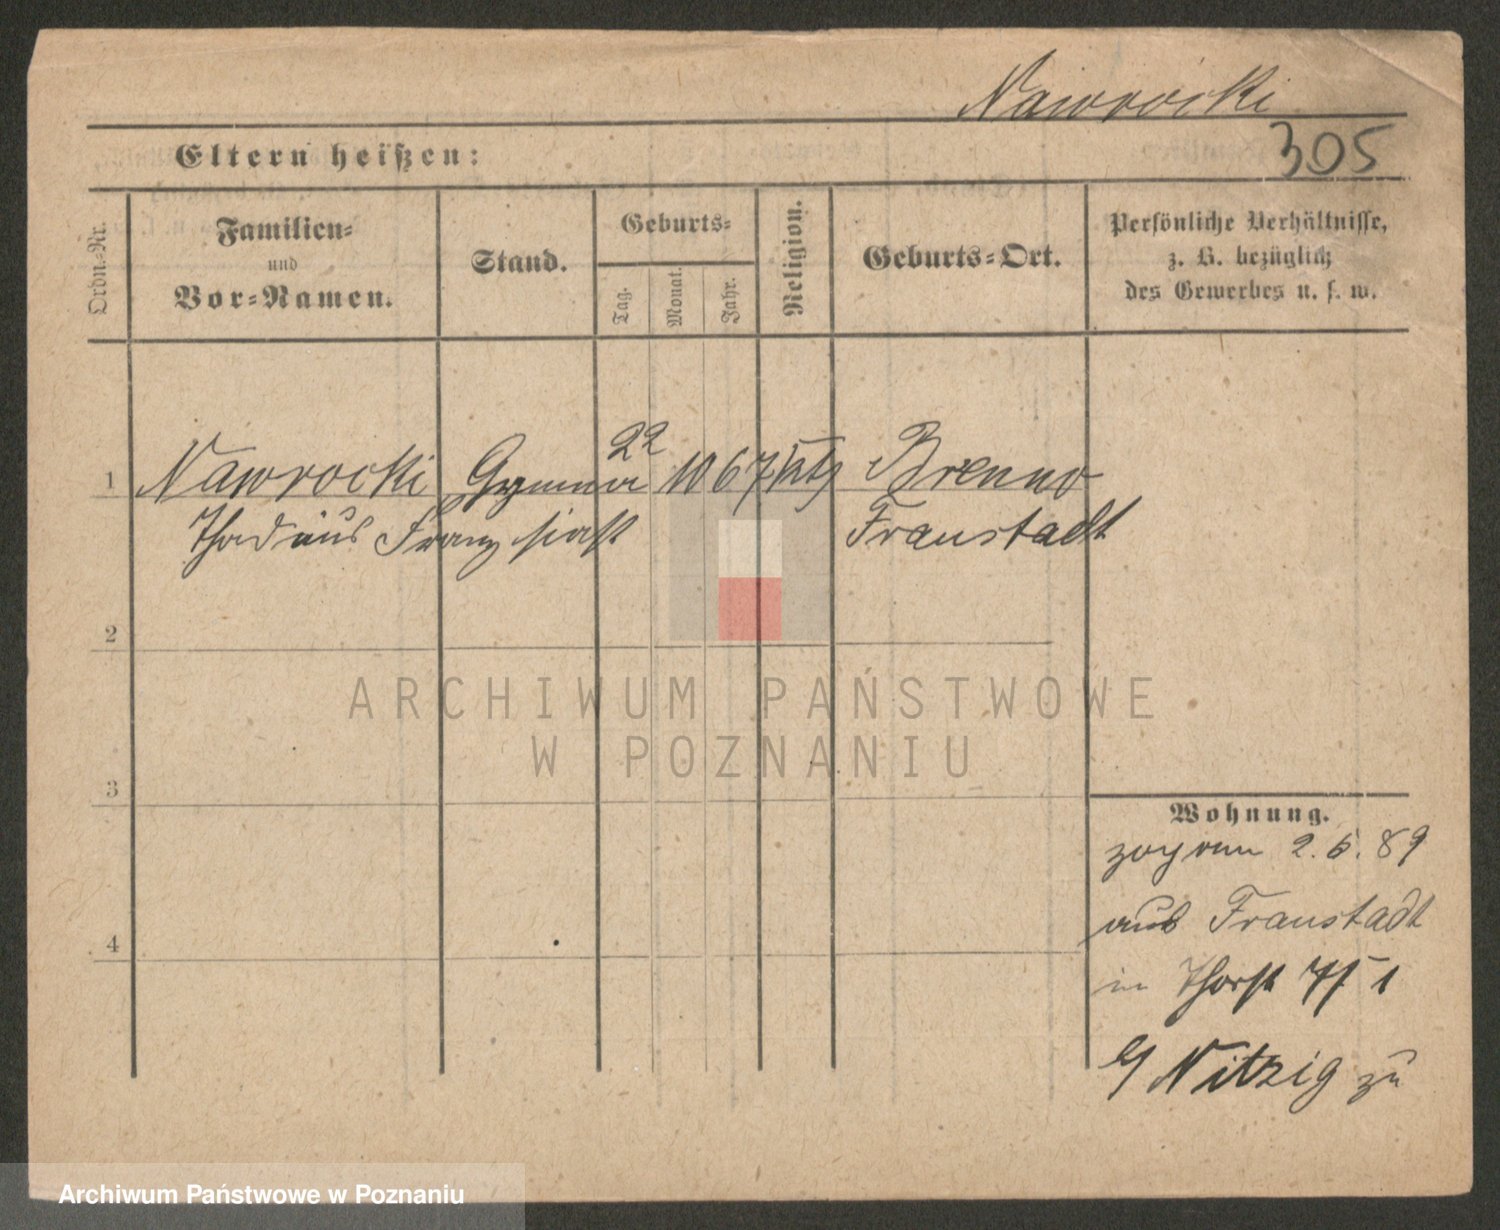 Nawrocki
305
Eltern heißen:
Ordn.-Nr.
Familien-
und
Vor-Namen.
Stand.
Geburts-
Tag.
Monat.
Jahr.
Religion.
Geburts-Ort.
Persönliche Verhältnisse,
z. B. bezüglich
des Gewerbes u. s. w.
1 Nawrocki Gymna 22 10 67 ktl Brenno
Thadäus Franz siast Fraustadt
2
3
4
Wohnung.
zog am 2.5.89
aus Fraustadt
in
b/ Nitzig zu
ARCHIWUM PAŃSTWOWE
W POZNANIU
Archiwum Państwowe w Poznaniu